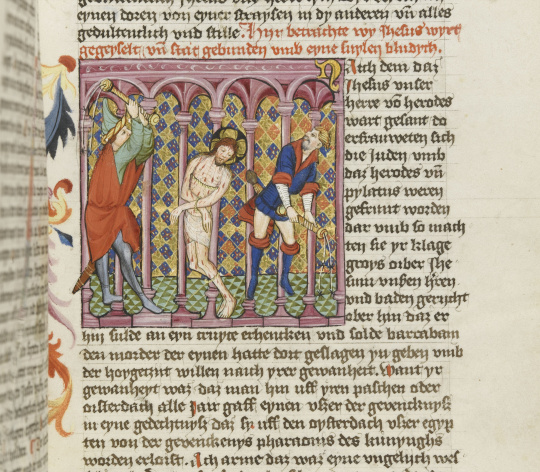 eynen doren von eyner straysen in dy anderen vn̄ alles
gedultenlich vnd stille. Hyr betrachte wy Jhesus wyrt
gegeyselt vn̄ starc gebunden vmb eyne suylen bludych.
Nach dem daz
Jhesus vnser
herre vō herodes
wart gesant do
erfrauweten sich
die Juden vmb
daz herodes vn̄
pylatus weren
gefrunt worden
dar vmb so mach
ten sie yr klage
groys ober Jhe
sum vnsen h̄ren
vnd baden gericht
ober hin daz er
hin sulde an eyn cruyce erhencken vnd solde barrabam
den morder der eynen hatte doit geslagen yn geben vmb
der hoygezint willen naich yrer gewanheit. Want yr
gewanheyt waz daz man hin uff yren paschen oder
oisterdach alle Jair gaff eynen vszer der gevencknysz
in eyne gedechtnysz daz sy uff den oysterdach vszer egyp
ten von der gevenckenys pharaonis des kunynghs
worden erloist. Ich arme daz war eyne vngelych wes